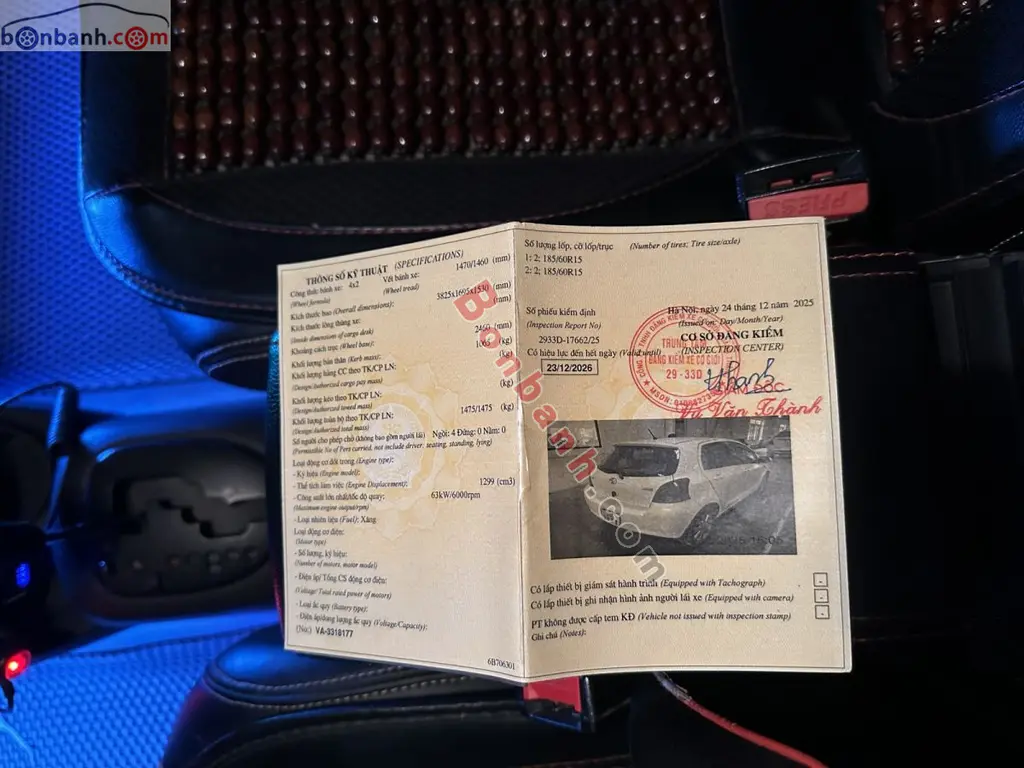 bonbanh.com
PRESS
THÔNG SỐ KỸ THUẬT (SPECIFICATIONS)
Công thức bánh xe: 4x2 Vết bánh xe: 1470/1460 (mm)
(Wheel formula) (Wheel tread)
Kích thước bao (Overall dimensions): 3825x1695x1530 (mm)
Kích thước lòng thùng xe: (mm)
(Inside dimensions of cargo desk)
Khoảng cách trục (Wheel base): 2460 (mm)
Khối lượng bản thân (Kerb mass): (kg)
Khối lượng hàng CC theo TK/CP LN:
(Design/Authorized cargo pay mass) (kg)
Khối lượng kéo theo TK/CP LN:
(Design/Authorized towed mass)
Khối lượng toàn bộ theo TK/CP LN: 1475/1475 (kg)
(Design/Authorized total mass)
Số người cho phép chở (không bao gồm người lái) Ngồi: 4 Đứng: 0 Nằm: 0
(Permissible No of Pers carried, not include driver: seating, standing, lying)
Loại động cơ đốt trong (Engine type):
- Ký hiệu (Engine model):
- Thể tích làm việc (Engine Displacement): 1299 (cm3)
- Công suất lớn nhất/tốc độ quay: 63kW/6000rpm
(Maximum engine output/rpm)
- Loại nhiên liệu (Fuel): Xăng
Loại động cơ điện:
(Motor type)
- Số lượng, ký hiệu:
(Number of motors, motor model)
- Điện áp/ Tổng CS động cơ điện:
(Voltage/ Total rated power of motors)
- Loại ắc quy (Battery type):
- Điện áp/dung lượng ắc quy (Voltage/Capacity):
(No:) VA-3318177
6B706301
Số lượng lốp, cỡ lốp/trục (Number of tires; Tire size/axle)
1: 2; 185/60R15
2: 2; 185/60R15
Số phiếu kiểm định
(Inspection Report No)
2933D-17662/25
Có hiệu lực đến hết ngày (Valid until)
23/12/2026
Hà Nội, ngày 24 tháng 12 năm 2025
(Issued on: Day/Month/Year)
CƠ SỞ ĐĂNG KIỂM
(INSPECTION CENTER)
TRUNG TÂM
ĐĂNG KIỂM XE CƠ GIỚI
29 - 33D
Vũ Văn Thành
Có lắp thiết bị giám sát hành trình (Equipped with Tachograph)
Có lắp thiết bị ghi nhận hình ảnh người lái xe (Equipped with camera)
PT không được cấp tem KĐ (Vehicle not issued with inspection stamp)
Ghi chú (Notes):
Bonbanh.com